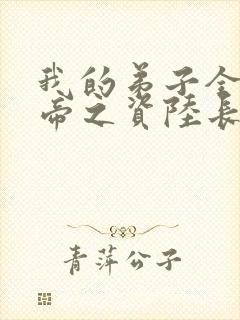 我的弟子全
帝之資陸長
青萍公子